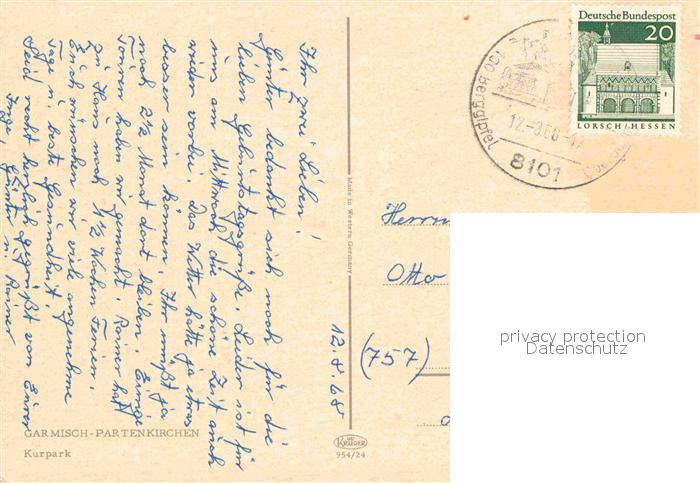 Ihr zwei Lieben!
Günter bedankt sich noch für die
lieben Geburtstagsgrüße. Leider ist für
uns am Mittwoch die schöne Zeit auch
wieder vorbei. Das Wetter hätte ja etwas
besser sein können. Ihr müßt ja
noch 2 1/2 Monat dort bleiben. Einige
Touren haben wir gemacht. Rainer hat
zu Haus noch 1 1/2 Wochen Ferien.
Euch wünschen wir viel angenehme
Tage u. beste Gesundheit.
Seid recht herzlich gegrüßt von Euren
Inge, Günter u. Rainer
12.8.68
GARMISCH-PARTENKIRCHEN
Kurpark
Made in Western Germany
KRÜGER
954/24
Deutsche Bundespost
20
LORSCH/HESSEN
8101
Herrn
Otto
(757)
privacy protection
Datenschutz